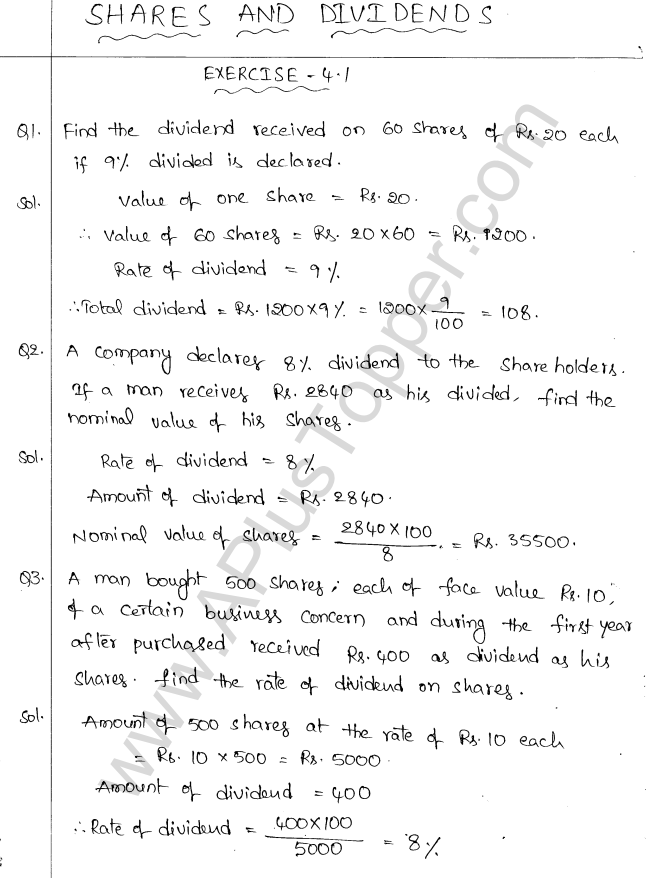 SHARES AND DIVIDENDS
EXERCISE - 4.1
Q1. Find the dividend received on 60 shares of Rs. 20 each
if 9% divided is declared.
Sol. Value of one share = Rs. 20.
∴ Value of 60 shares = Rs. 20×60 = Rs. 1200.
Rate of dividend = 9%
∴ Total dividend = Rs. 1200×9% = 1200× 9/100 = 108.
Q2. A company declares 8% dividend to the share holders.
If a man receives Rs. 2840 as his divided, find the
nominal value of his shares.
Sol. Rate of dividend = 8%
Amount of dividend = Rs. 2840.
Nominal value of shares = 2840×100/8 = Rs. 35500.
Q3. A man bought 500 shares, each of face value Rs. 10,
of a certain business concern and during the first year
after purchased received Rs. 400 as dividend as his
shares. find the rate of dividend on shares.
Sol. Amount of 500 shares at the rate of Rs. 10 each
= Rs. 10 × 500 = Rs. 5000.
Amount of dividend = 400
∴ Rate of dividend = 400×100/5000 = 8%
www.APlusTopper.com